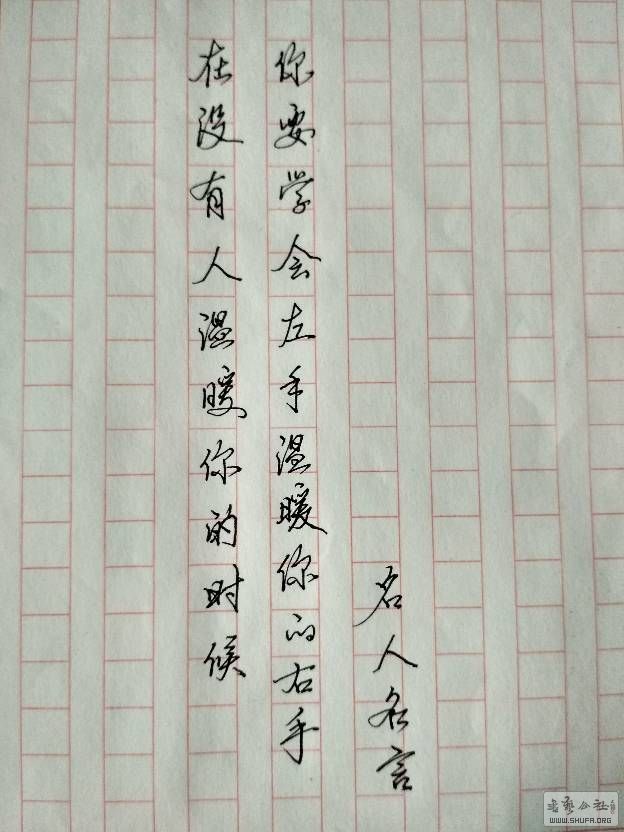 在没有人温暖你的时候
你要学会左手温暖你的右手
名人名言
WWW.SHUFA.ORG